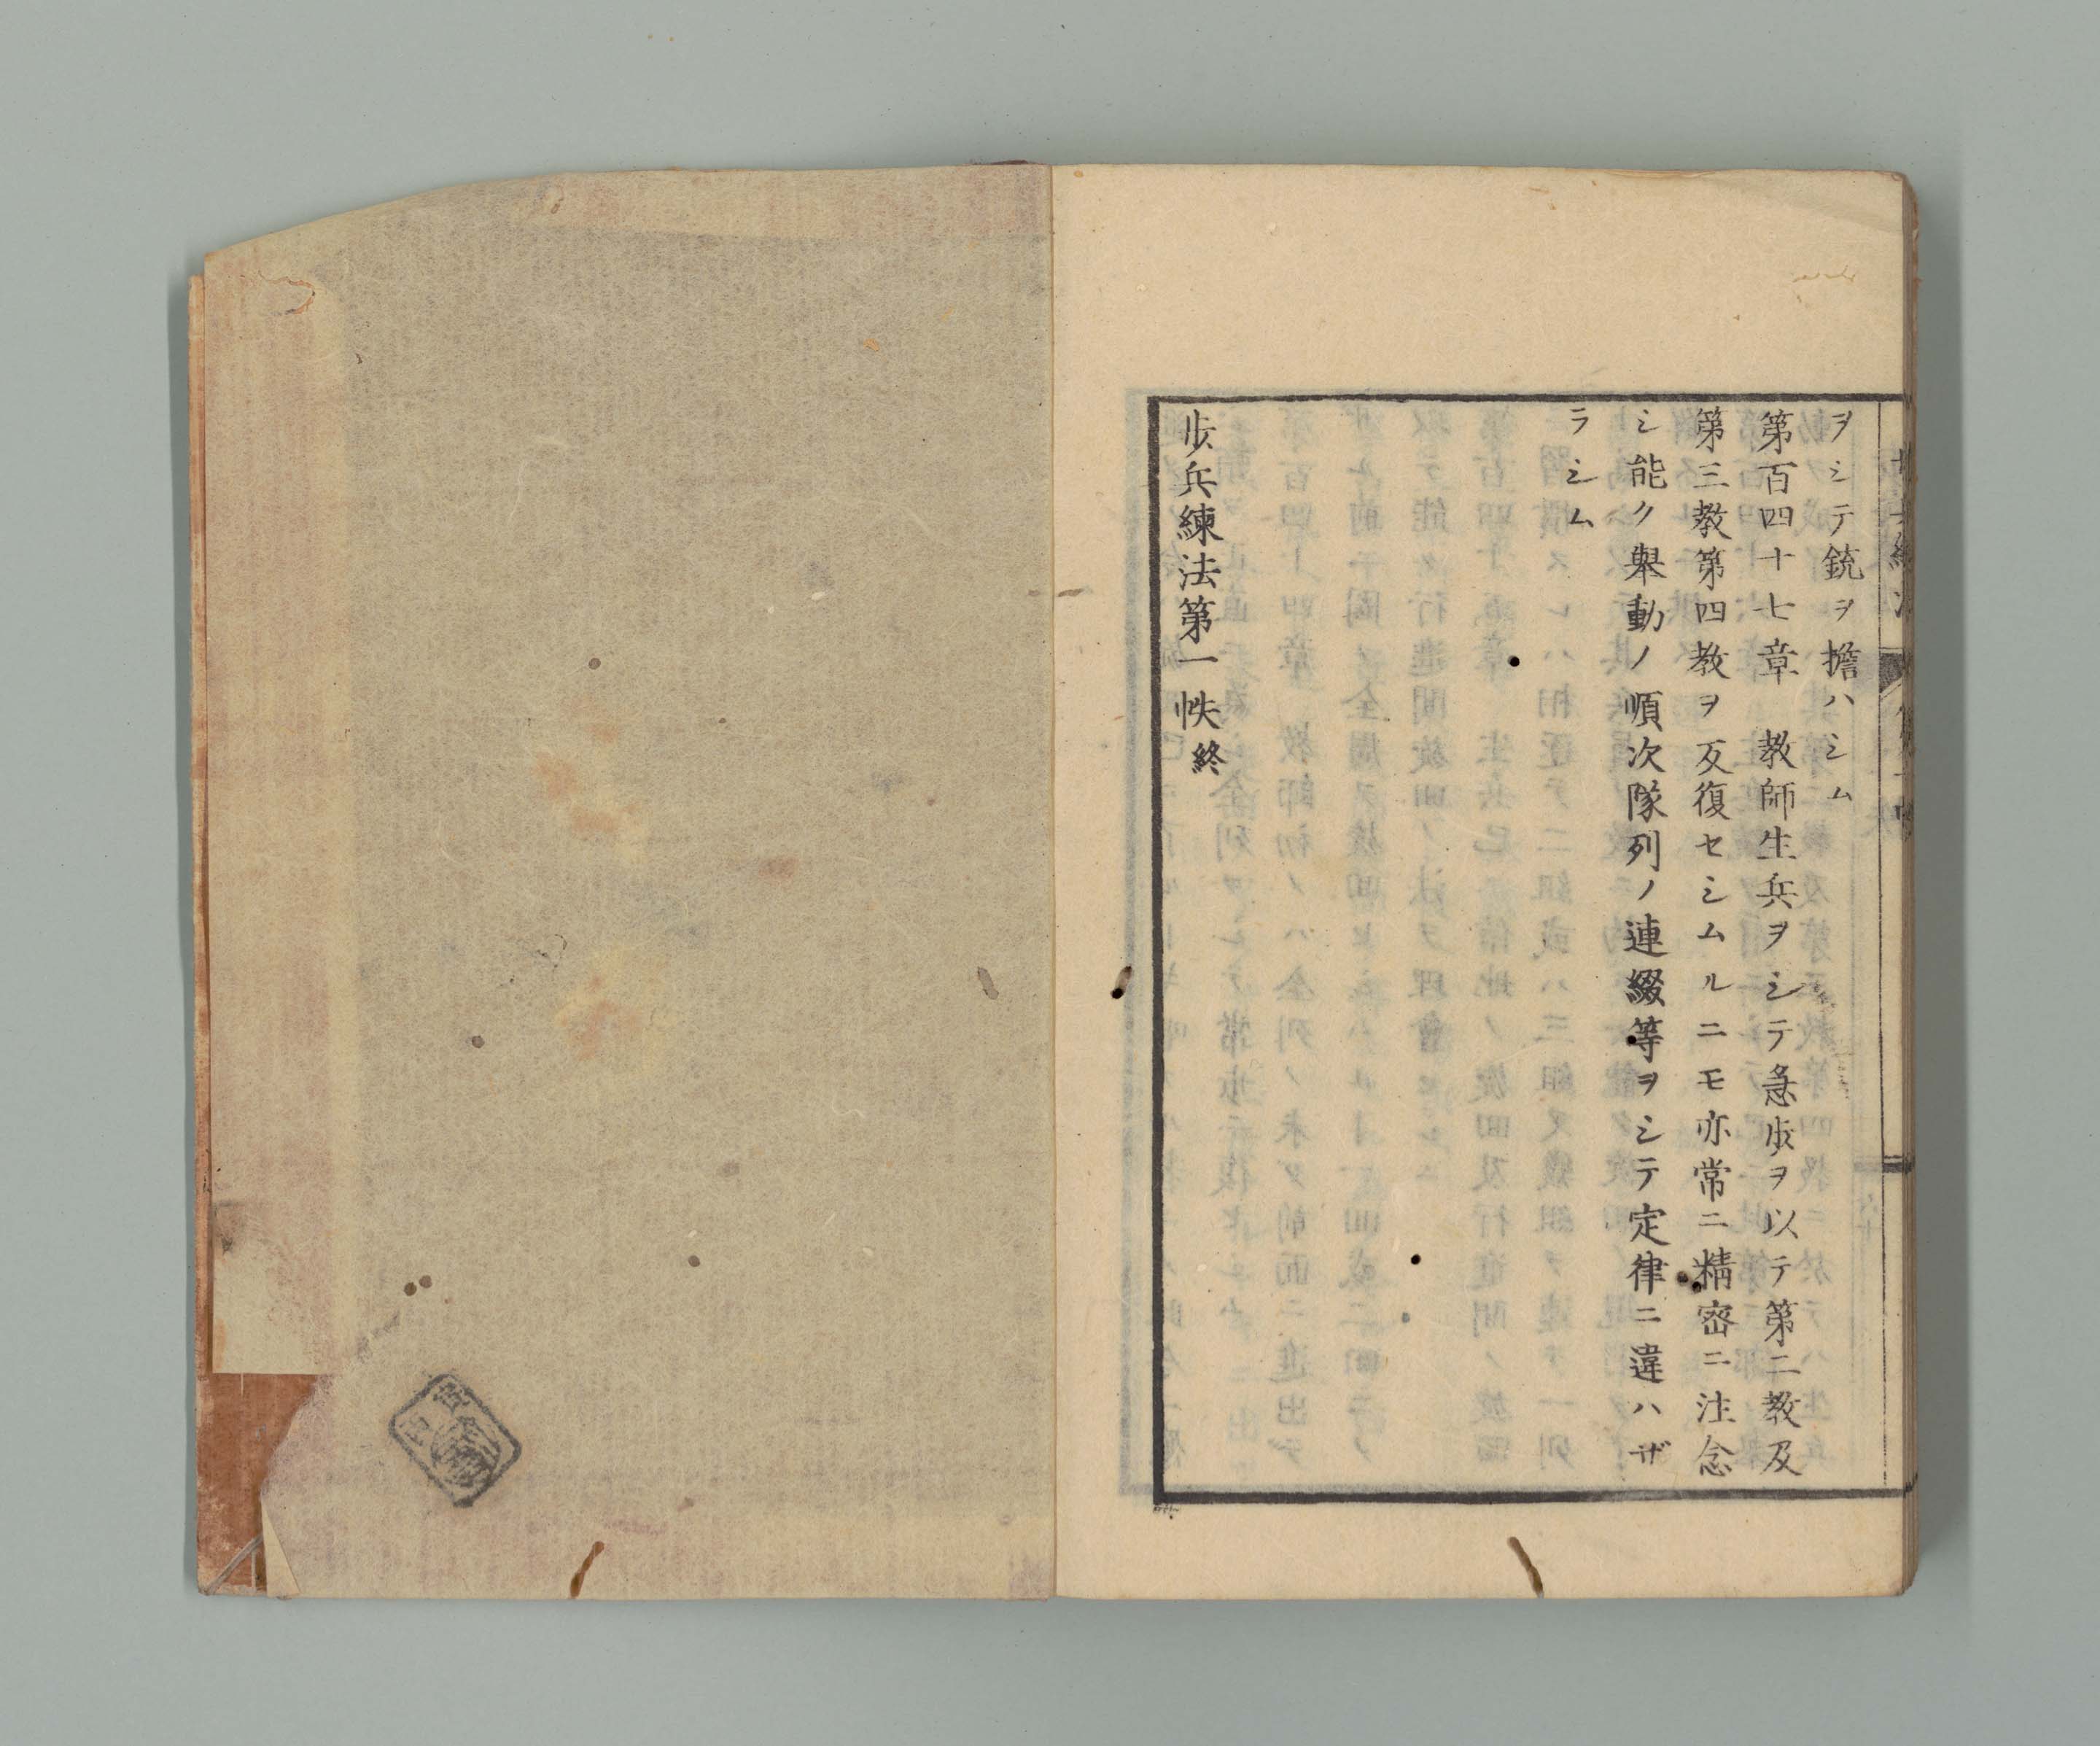 ヲシテ銃ヲ擔ハシム
第百四十七章　教師生兵ヲシテ急歩ヲ以テ第二教及
第三教第四教ヲ反復セシムルニモ亦常ニ精密ニ注念
シ能ク舉動ノ順次隊列ノ連綴等ヲシテ定律ニ違ハザ
ラシム
歩兵練法第一帙終